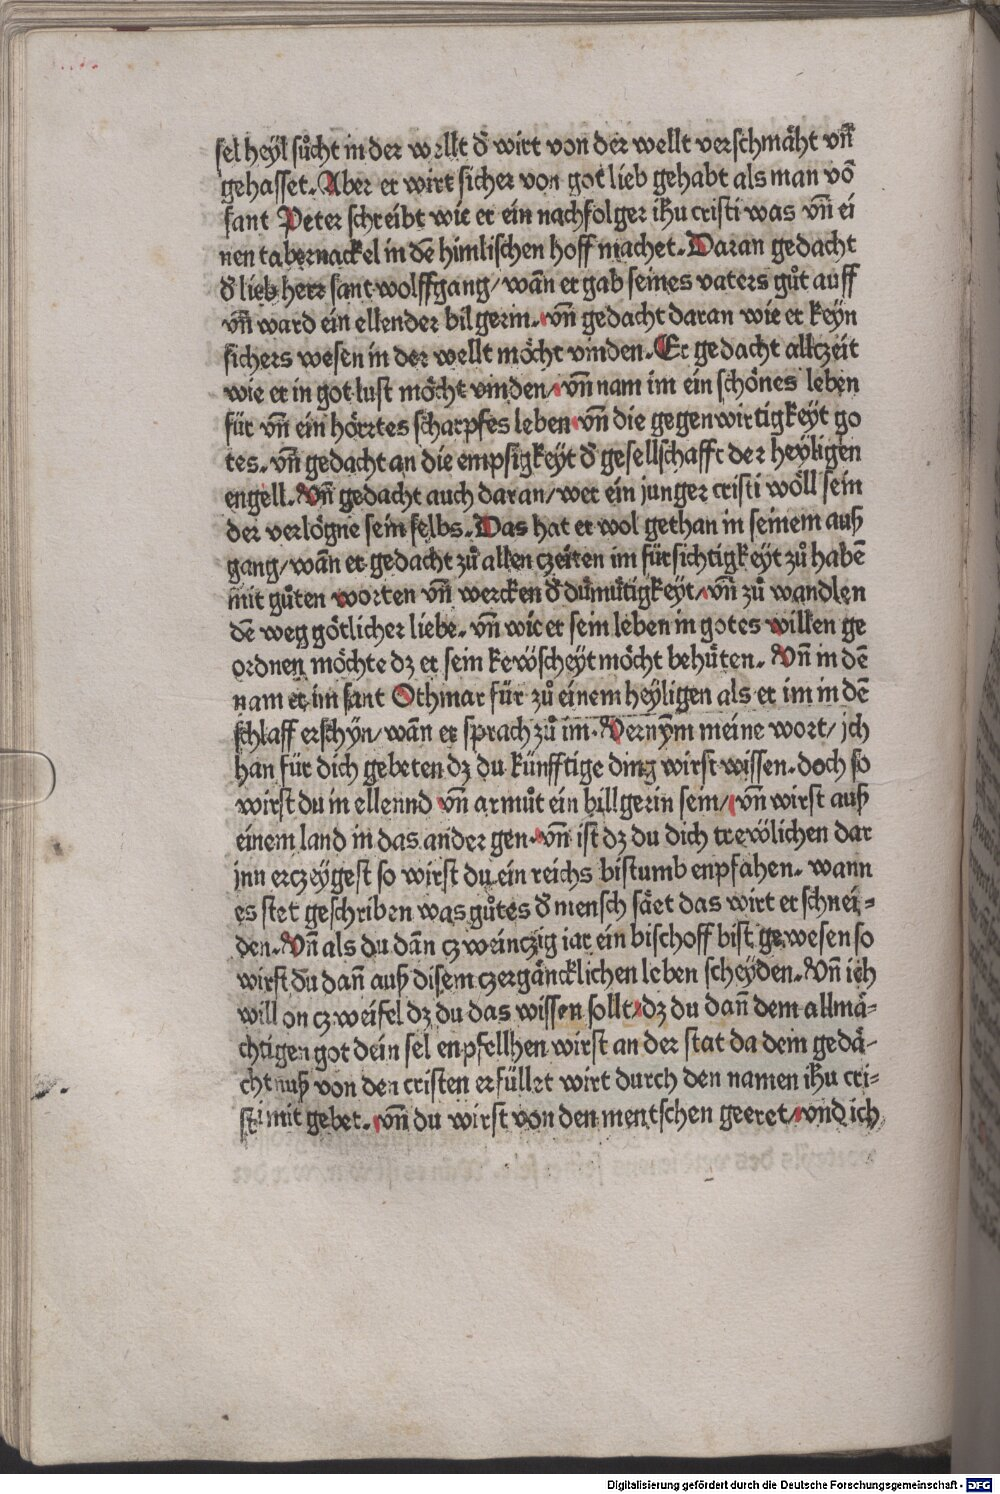 sel heyl sůcht in der wellt d̄ wirt von der wellt verschmäht vn̄
gehasset. Aber er wirt sicher von got lieb gehabt als man vō
sant Peter schreibt wie er ein nachfolger ihu cristi was vn̄ ei
nen tabernackel in dē himlischen hoff machet. Daran gedacht
d̄ lieb herr sant wolffgang/ wān er gab seines vaters gůt auff
vn̄ ward ein ellender bilgerin. vn̄ gedacht daran wie er keyn
sichers wesen in der wellt möcht vinden. Er gedacht allczeit
wie er in got lust möcht vinden/ vn̄ nam im ein schönes leben
für vn̄ ein hörrtes scharpfes leben vn̄ die gegenwirtigkeyt go
tes. vn̄ gedacht an die empsigkeyt d̄ gesellschafft der heyligen
engell. Vn̄ gedacht auch daran/ wer ein junger cristi wöll sein
der verlögne sein selbs. Das hat er wol gethan in seinem auß
gang/ wān er gedacht zů allen czeiten im fürsichtigkeyt zů habē
mit gůten worten vn̄ wercken d̄ dümütigkeyt/ vn̄ zů wandlen
dē weg götlicher liebe. vn̄ wie er sein leben in gotes willen ge
ordnen möchte dz er sein kewscheyt möcht behüten. Vn̄ in dē
nam er im sant Othmar für zů einem heyligen als er im in dē
schlaff erschyn/ wān er sprach zů im. Vernym meine wort/ jch
han für dich gebeten dz du künfftige ding wirst wissen. doch so
wirst du in ellennd vn̄ armůt ein billgerin sein/ vn̄ wirst auß
einem land in das ander gen. vn̄ ist dz du dich trewlichen dar
jnn erczeygest so wirst du ein reichs bistumb enpfahen. wann
es stet geschriben was gůtes d̄ mensch säet das wirt er schnei=
den. Vn̄ als du dān czweinczig iar ein bischoff bist gewesen so
wirst du dan̄ auß disem czergäncklichen leben scheyden. Vn̄ ich
will on czweifel dz du das wissen sollt/ dz du dan̄ dem allmä=
chtigen got dein sel enpfellhen wirst an der stat da dein gedä=
chtnuß von den cristen erfüllet wirt durch den namen ihu cri=
sti mit gebet. vn̄ du wirst von den mentschen geeret/ vnd ich
Digitalisierung gefördert durch die Deutsche Forschungsgemeinschaft - DFG